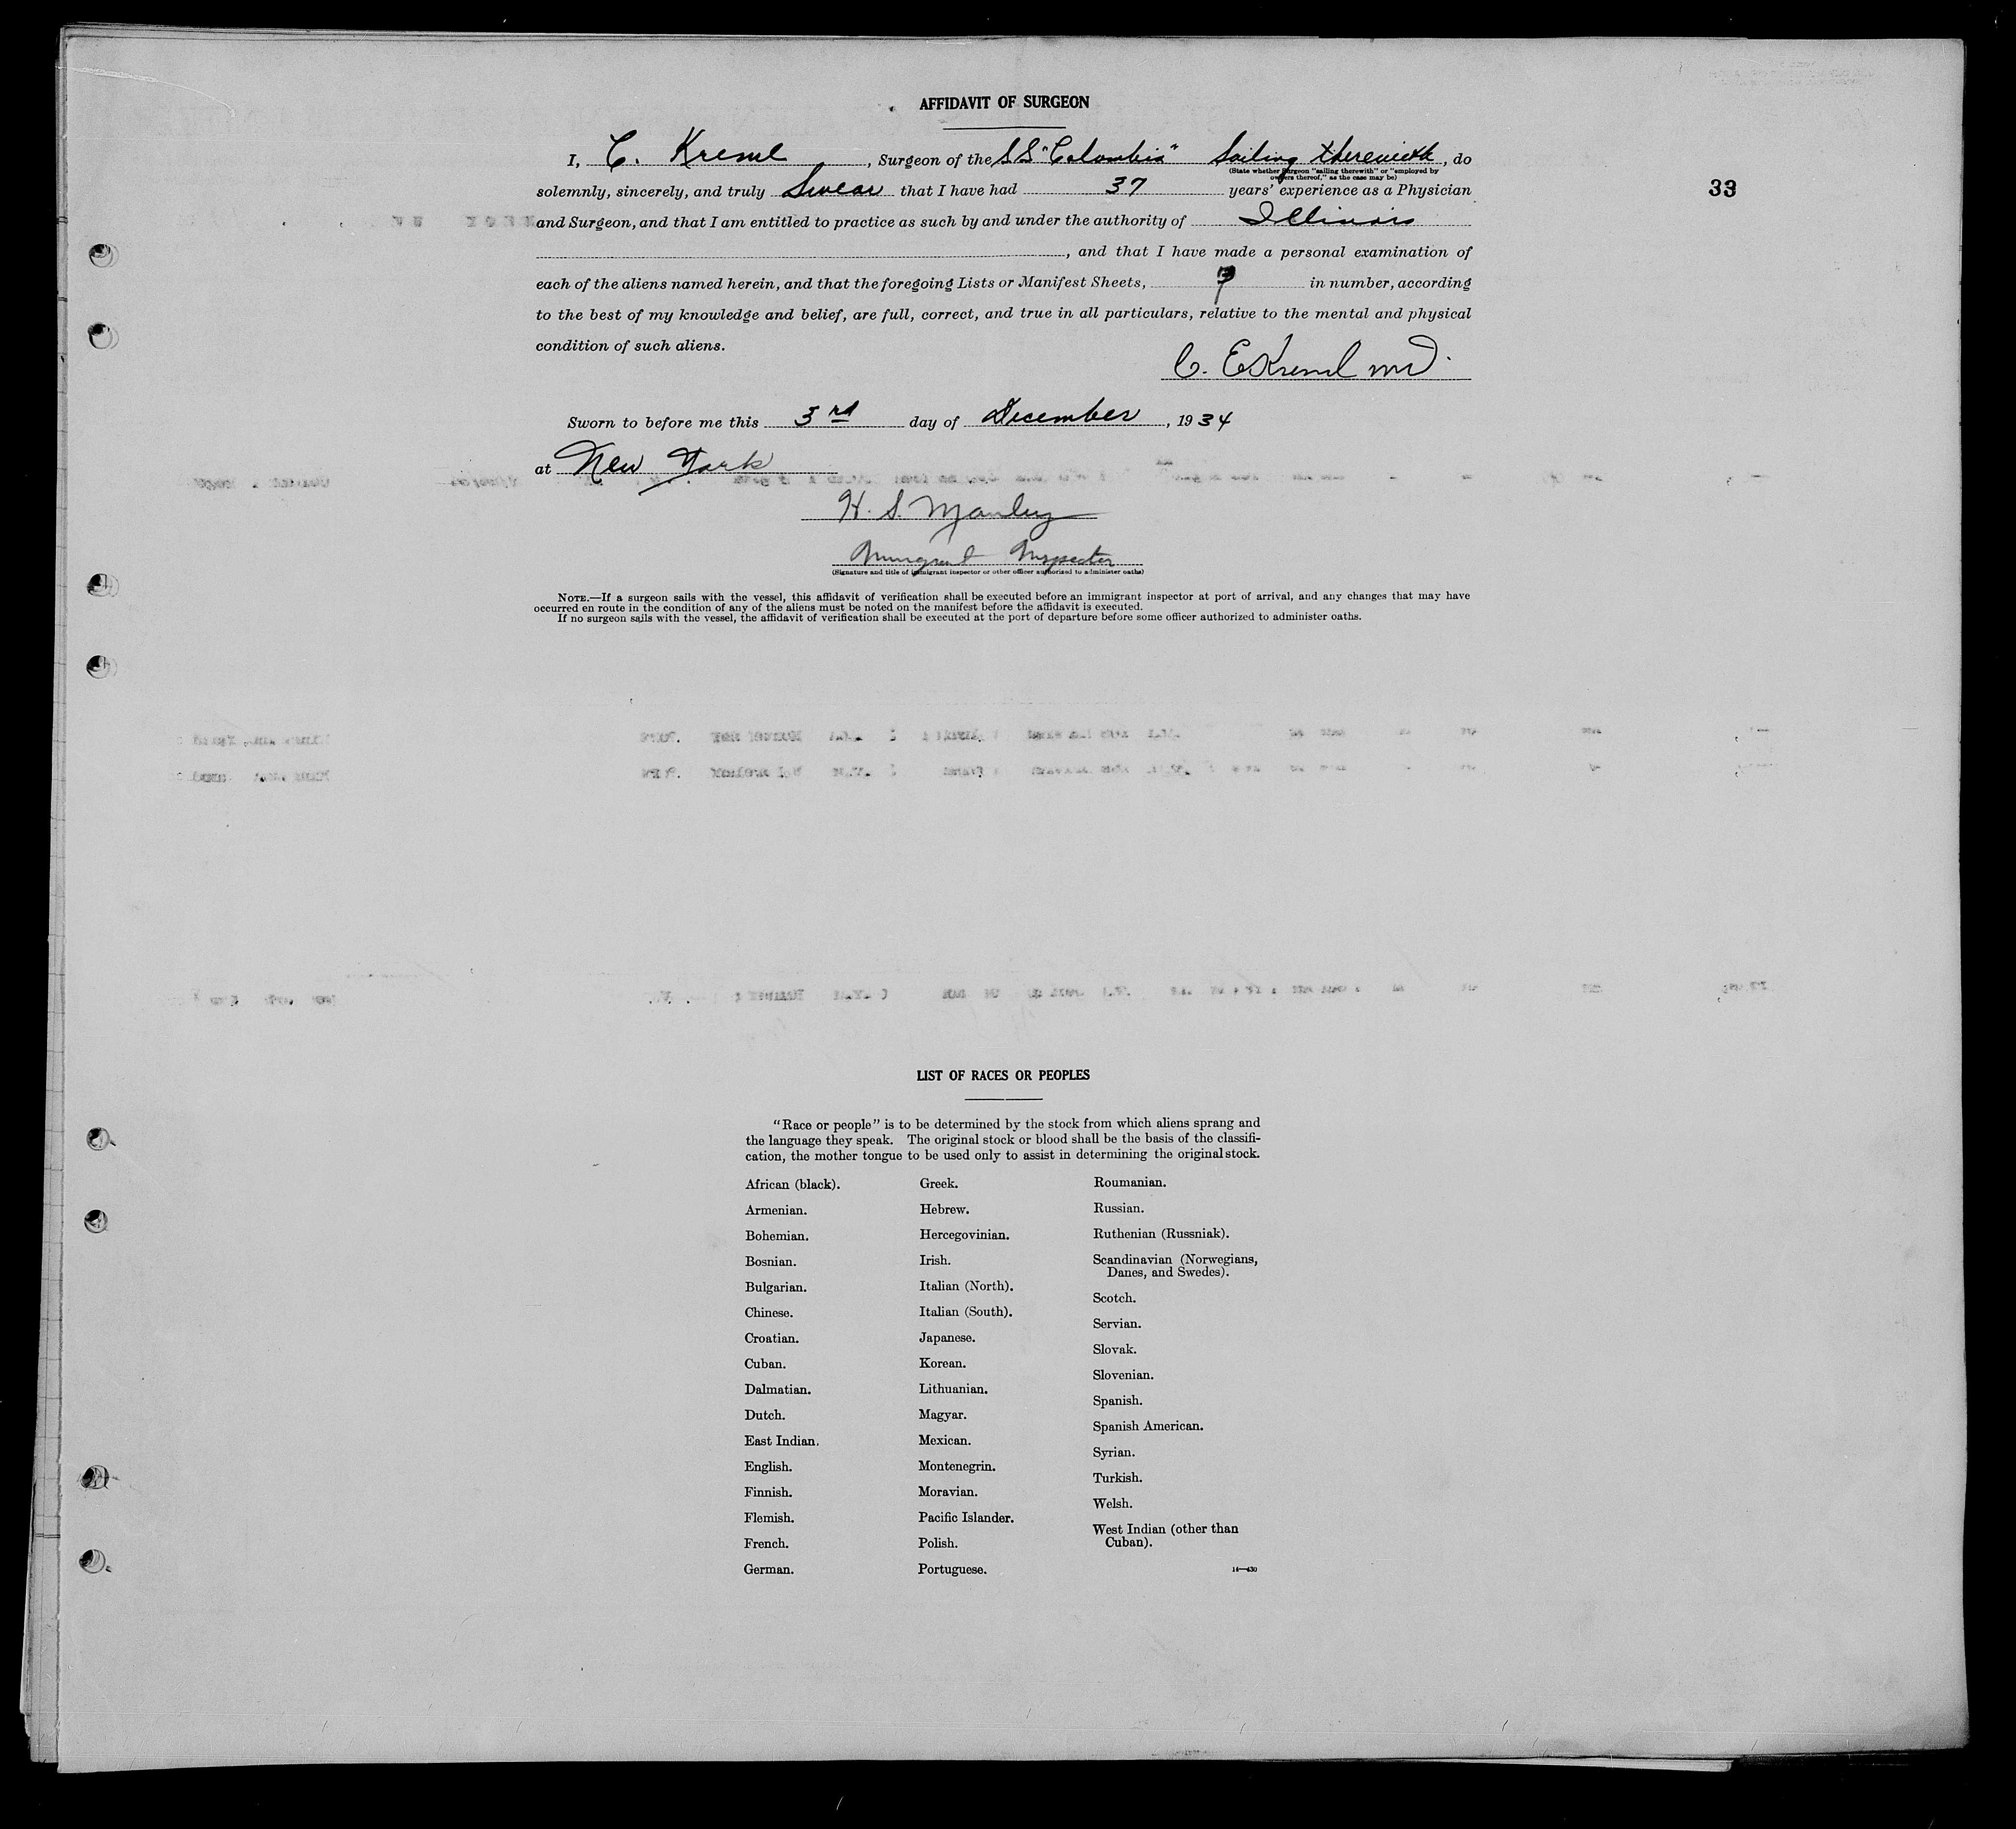 AFFIDAVIT OF SURGEON
I, C. Kreml, Surgeon of the SS "Colombia" Sailing therewith, do
(State whether Surgeon "sailing therewith" or "employed by
owners thereof," as the case may be)
solemnly, sincerely, and truly Swear that I have had 37 years' experience as a Physician
33
and Surgeon, and that I am entitled to practice as such by and under the authority of Illinois
, and that I have made a personal examination of
each of the aliens named herein, and that the foregoing Lists or Manifest Sheets, 7 in number, according
to the best of my knowledge and belief, are full, correct, and true in all particulars, relative to the mental and physical
condition of such aliens.
C. E Kreml MD.
Sworn to before me this 3rd day of December, 1934
at New York
H. S. Manley
Immigrant Inspector
(Signature and title of immigrant inspector or other officer authorized to administer oaths)
NOTE.—If a surgeon sails with the vessel, this affidavit of verification shall be executed before an immigrant inspector at port of arrival, and any changes that may have
occurred en route in the condition of any of the aliens must be noted on the manifest before the affidavit is executed.
If no surgeon sails with the vessel, the affidavit of verification shall be executed at the port of departure before some officer authorized to administer oaths.
LIST OF RACES OR PEOPLES
"Race or people" is to be determined by the stock from which aliens sprang and
the language they speak. The original stock or blood shall be the basis of the classifi-
cation, the mother tongue to be used only to assist in determining the original stock.
African (black).
Armenian.
Bohemian.
Bosnian.
Bulgarian.
Chinese.
Croatian.
Cuban.
Dalmatian.
Dutch.
East Indian.
English.
Finnish.
Flemish.
French.
German.
Greek.
Hebrew.
Hercegovinian.
Irish.
Italian (North).
Italian (South).
Japanese.
Korean.
Lithuanian.
Magyar.
Mexican.
Montenegrin.
Moravian.
Pacific Islander.
Polish.
Portuguese.
Roumanian.
Russian.
Ruthenian (Russniak).
Scandinavian (Norwegians,
Danes, and Swedes).
Scotch.
Servian.
Slovak.
Slovenian.
Spanish.
Spanish American.
Syrian.
Turkish.
Welsh.
West Indian (other than
Cuban).
14—430